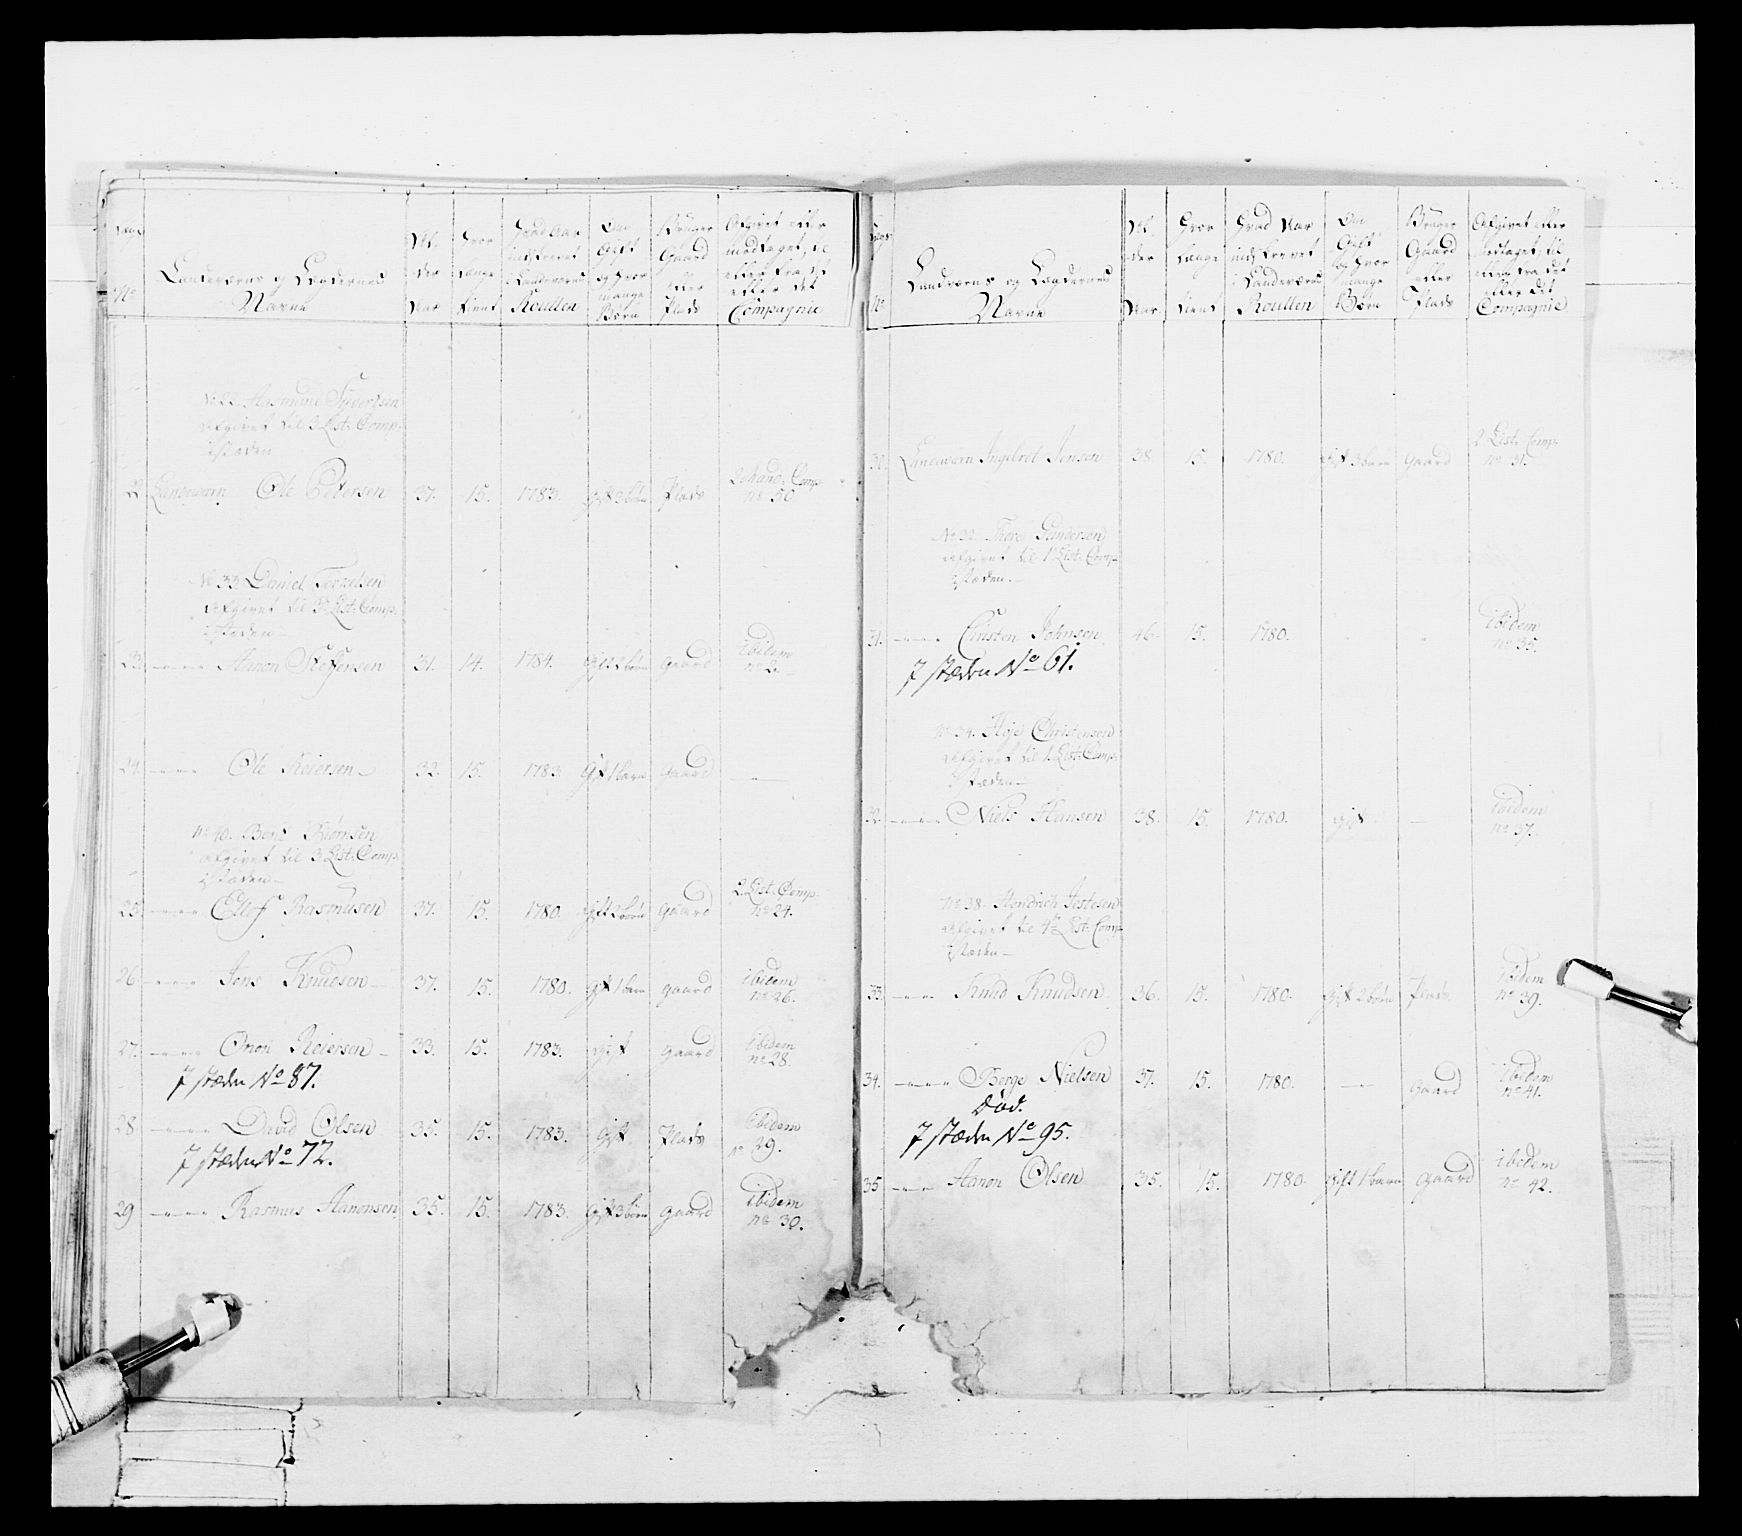 No
Landeværns og Lægdernes
Navne
Al-
der
Aar
Hvor
længe
tient
Hvad Aar
indskrevet
i Landeværns
Roullen
Om
Gift
og hvor
mange
Børn
Bruger
Gaard
eller
Plads
Afgivet eller
modtaget, til
eller fra det
eller det
Compagnie
Aasmund Sÿvertsen
afgivet til 3 List: Comp.
istæden
22 Landeværn Ole Pedersen 37. 15. 1783. gift 3 børn Plads 2 Mand: Comp: no 50
No 33 Daniel Tønnesen
afgivet til 3 List: Comp.
istæden
23. Aanon Steffensen 31. 14. 1784. Gift 2 børn gaard ibidem no 2.
24. Ole Reiersen 32. 15. 1783 Gift 1 barn Gaard
no 40. Bent Biørnsen
afgivet til 3 List: Comp.
istæden
25. Ellef Rasmusen 37. 15. 1780. gift 2 børn gaard 2 List: Comp. no 24.
26. Jens Knudsen 37. 15. 1780. gift 1 barn gaard ibidem no 26.
27. Onon Reiersen 33. 15. 1783. gift gaard ibidem no 28.
I stæden No 87.
28 David Olsen 35. 15. 1783. gift Plads ibidem no 29.
I stæden No 72.
29 Rasmus Aanonsen 35. 15. 1783. gift 3 børn gaard ibidem no 30.
No
Landværns og Lægdernes
Navne
Al-
der
Aar.
Hvor
længe
tient
Hvad Aar
indskrevet
i Landeværns
Roullen
Om
Gift
og hvor
mange
Børn
Bruger
Gaard
eller
Plads
Afgivet eller
modtaget, til
eller fra det
eller det
Compagnie
30. Landeværn Ingebret Jensen 38 15. 1780. gift 3 børn gaard 2 List: Comp: no 31.
No 32. Thore Gundersen
afgivet til 1 List: Comp.
istæden.
31. Christen Johnsen 46. 15. 1780. ibidem no 35.
I stæden No 61.
no 34. Christensen
afgivet til 1 List: Comp:
istæden
32. Niels Hansen 38. 15. 1780. gift ibidem no 37.
no 38. Hendrich Jestesen
afgivet til 4de List: Comp
istæden
33. Knud Knudsen 36. 15. 1780. gift 2 børn Plads ibidem no 39.
34. Berge Nielsen 37. 15. 1780. gaard ibidem no 41.
Død.
I stæden No 95.
35 Aanon Olsen 35. 15. 1780. gift 1 barn gaard ibidem no 42.